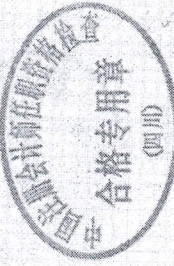 中国注册会计师任职资格检查
合格专用章
(四川)